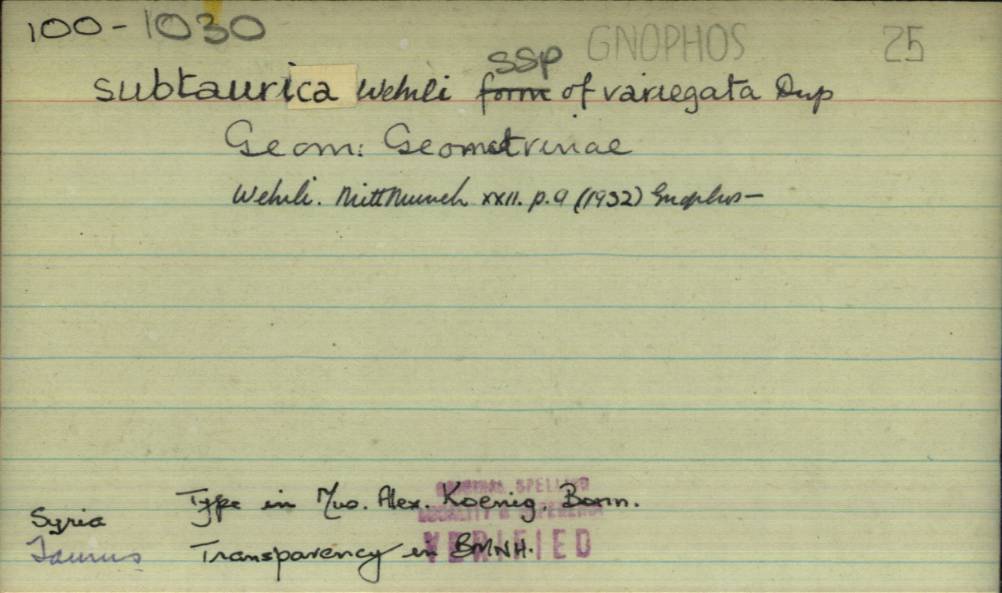 100-1030 GNOPHOS 25
ssp
subtaurica Wehrli form of variegata Dup
Geom: Geometrinae
Wehrli. Mitt Munch xxii. p.9 (1932) Gnophos—
ORIGINAL SPELLING
Type in Mus. Alex. Koenig, Bonn.
Syria
LOCALITY & REFERENCE
Taurus Transparency in BMNH.
VERIFIED